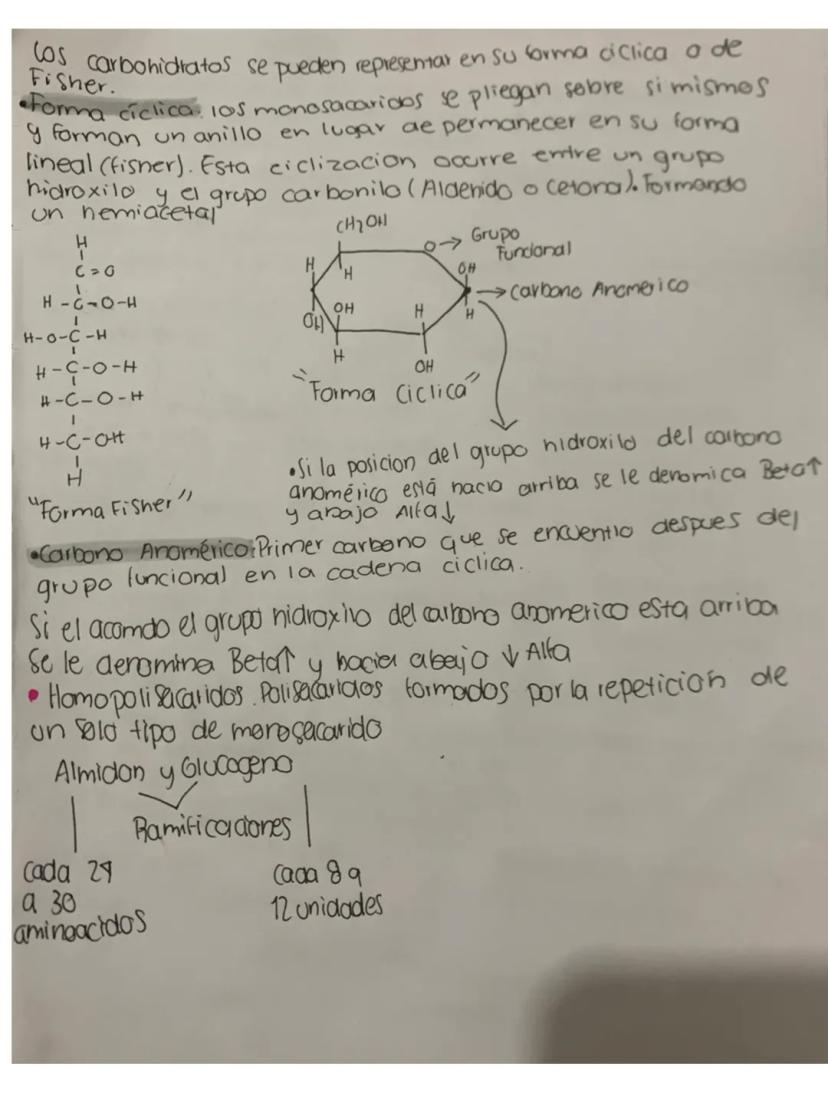 Los carbohidratos se pueden representar en su forma ciclica o de
Fisher.
•Forma cíclica: los monosacaridos se pliegan sobre si mismos
y forman un anillo en lugar de permanecer en su forma
lineal (fisher). Esta ciclizacion ocurre entre un grupo
hidroxilo y el grupo carbonilo (Aldehido o cetona). Formando
un hemiacetal
H
C=O
H-C-O-H
H-O-C-H
H-C-O-H
H-C-O-H
H-C-OH
H
"Forma Fisher"
CH2OH
O→ Grupo
Funcional
H
H
OH
→Carbono Anomerico
OH
OH
H
H
H
OH
"Forma Ciclica"
•Si la posicion del grupo hidroxilo del carbono
anomérico está hacia arriba se le denomica Beta↑
y abajo Alfa↓
•Carbono Anomérico: Primer carbono que se encuentro despues del
grupo funcional en la cadena ciclica.
Si el acomdo el grupo hidroxilo del carbono anomerico esta arriba
se le denomina Beta↑ y hacia abajo ↓ Alfa
• Homopolisacaridos. Polisacaridos formados por la repeticion de
un solo tipo de monosacarido
Almidon y Glucogeno
Ramificaciones
cada 24
a 30
aminoacidos
cada 8 a
12 unidades